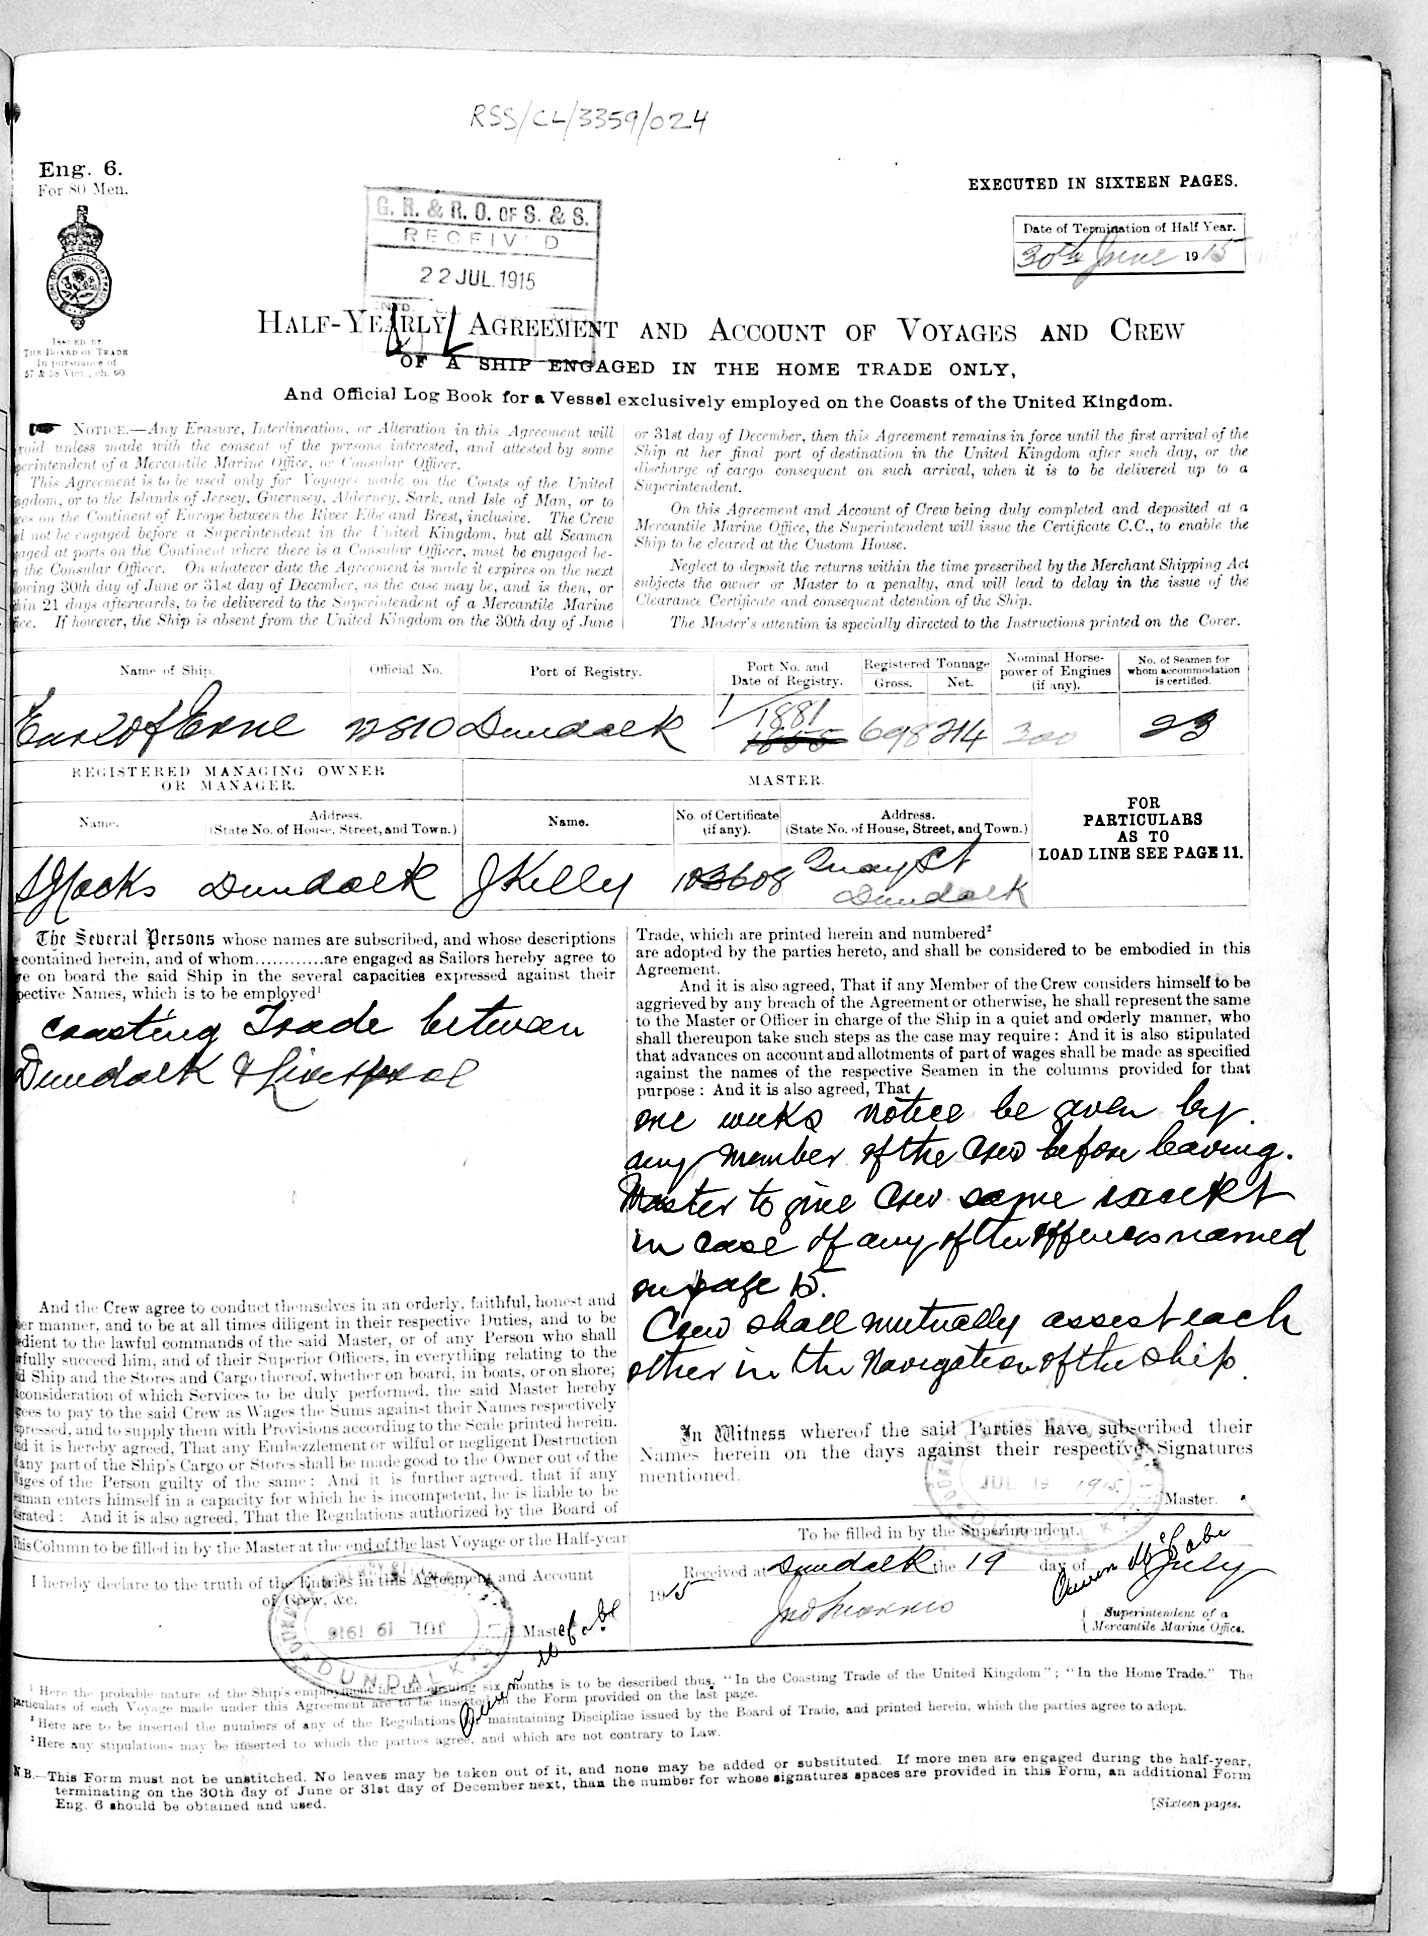 RSS/CL/3359/024
Eng. 6.
For 80 Men.
EXECUTED IN SIXTEEN PAGES.
G. R. & R. O. OF S. & S.
RECEIV D
22 JUL. 1915
Date of Termination of Half Year.
30th June 1915
ISSUED BY
THE BOARD OF TRADE
In pursuance of
57 & 58 Vict., ch. 60.
HALF-YEARLY AGREEMENT AND ACCOUNT OF VOYAGES AND CREW
OF A SHIP ENGAGED IN THE HOME TRADE ONLY,
And Official Log Book for a Vessel exclusively employed on the Coasts of the United Kingdom.
NOTICE.—Any Erasure, Interlineation, or Alteration in this Agreement will
void unless made with the consent of the persons interested, and attested by some
perintendent of a Mercantile Marine Office, or Consular Officer.
This Agreement is to be used only for Voyages made on the Coasts of the United
ngdom, or to the Islands of Jersey, Guernsey, Alderney, Sark, and Isle of Man, or to
ces on the Continent of Europe between the River Elbe and Brest, inclusive. The Crew
d not be engaged before a Superintendent in the United Kingdom, but all Seamen
gaged at ports on the Continent where there is a Consular Officer, must be engaged be-
the Consular Officer. On whatever date the Agreement is made it expires on the next
owing 30th day of June or 31st day of December, as the case may be, and is then, or
hin 21 days afterwards, to be delivered to the Superintendent of a Mercantile Marine
ice. If however, the Ship is absent from the United Kingdom on the 30th day of June
or 31st day of December, then this Agreement remains in force until the first arrival of the
Ship at her final port of destination in the United Kingdom after such day, or the
discharge of cargo consequent on such arrival, when it is to be delivered up to a
Superintendent.
On this Agreement and Account of Crew being duly completed and deposited at a
Mercantile Marine Office, the Superintendent will issue the Certificate C.C., to enable the
Ship to be cleared at the Custom House.
Neglect to deposit the returns within the time prescribed by the Merchant Shipping Act
subjects the owner or Master to a penalty, and will lead to delay in the issue of the
Clearance Certificate and consequent detention of the Ship.
The Master's attention is specially directed to the Instructions printed on the Cover.
Name of Ship. Official No. Port of Registry. Port No. and Date of Registry. Registered Tonnage Gross. Net. Nominal Horse-power of Engines (if any). No. of Seamen for whom accommodation is certified.
Earl of Erne 12810 Dundalk 1/1881 698 214 300 23
REGISTERED MANAGING OWNER
OR MANAGER.
MASTER.
Name. Address. (State No. of House, Street, and Town.) Name. No. of Certificate (if any). Address. (State No. of House, Street, and Town.)
FOR
PARTICULARS
AS TO
LOAD LINE SEE PAGE 11.
S J Cocks Dundalk J Kelly 103608 Quay St
Dundalk
The Several Persons whose names are subscribed, and whose descriptions
contained herein, and of whom............are engaged as Sailors hereby agree to
e on board the said Ship in the several capacities expressed against their
pective Names, which is to be employed¹
Coasting Trade between
Dundalk & Liverpool
And the Crew agree to conduct themselves in an orderly, faithful, honest and
er manner, and to be at all times diligent in their respective Duties, and to be
edient to the lawful commands of the said Master, or of any Person who shall
fully succeed him, and of their Superior Officers, in everything relating to the
d Ship and the Stores and Cargo thereof, whether on board, in boats, or on shore;
consideration of which Services to be duly performed, the said Master hereby
ees to pay to the said Crew as Wages the Sums against their Names respectively
pressed, and to supply them with Provisions according to the Scale printed herein.
nd it is hereby agreed, That any Embezzlement or wilful or negligent Destruction
any part of the Ship's Cargo or Stores shall be made good to the Owner out of the
ages of the Person guilty of the same: And it is further agreed, that if any
eaman enters himself in a capacity for which he is incompetent, he is liable to be
srated: And it is also agreed, That the Regulations authorized by the Board of
Trade, which are printed herein and numbered²
are adopted by the parties hereto, and shall be considered to be embodied in this
Agreement.
And it is also agreed, That if any Member of the Crew considers himself to be
aggrieved by any breach of the Agreement or otherwise, he shall represent the same
to the Master or Officer in charge of the Ship in a quiet and orderly manner, who
shall thereupon take such steps as the case may require: And it is also stipulated
that advances on account and allotments of part of wages shall be made as specified
against the names of the respective Seamen in the columns provided for that
purpose: And it is also agreed, That
one weeks notice be given by
any member of the Crew before leaving.
Master to give Crew same except
in case of any of the offences named
on page 15.
Crew shall mutually assist each
other in the Navigation of the Ship.
In Witness whereof the said Parties have subscribed their
Names herein on the days against their respective Signatures
mentioned.
JUL 19 1915
Master.
This Column to be filled in by the Master at the end of the last Voyage or the Half-year
I hereby declare to the truth of the Entries in this Agreement and Account
of Crew, &c.
Master
Owen McCabe
JUL 19 1915
DUNDALK
To be filled in by the Superintendent.
Received at Dundalk the 19 day of July
1915
Owen McCabe
Superintendent of a
Mercantile Marine Office.
¹ Here the probable nature of the Ship's employment for the ensuing six months is to be described thus, "In the Coasting Trade of the United Kingdom"; "In the Home Trade." The
particulars of each Voyage made under this Agreement are to be inserted in the Form provided on the last page.
² Here are to be inserted the numbers of any of the Regulations for maintaining Discipline issued by the Board of Trade, and printed herein, which the parties agree to adopt.
³ Here any stipulations may be inserted to which the parties agree, and which are not contrary to Law.
N.B.—This Form must not be unstitched. No leaves may be taken out of it, and none may be added or substituted. If more men are engaged during the half-year,
terminating on the 30th day of June or 31st day of December next, than the number for whose signatures spaces are provided in this Form, an additional Form
Eng. 6 should be obtained and used.
[Sixteen pages.